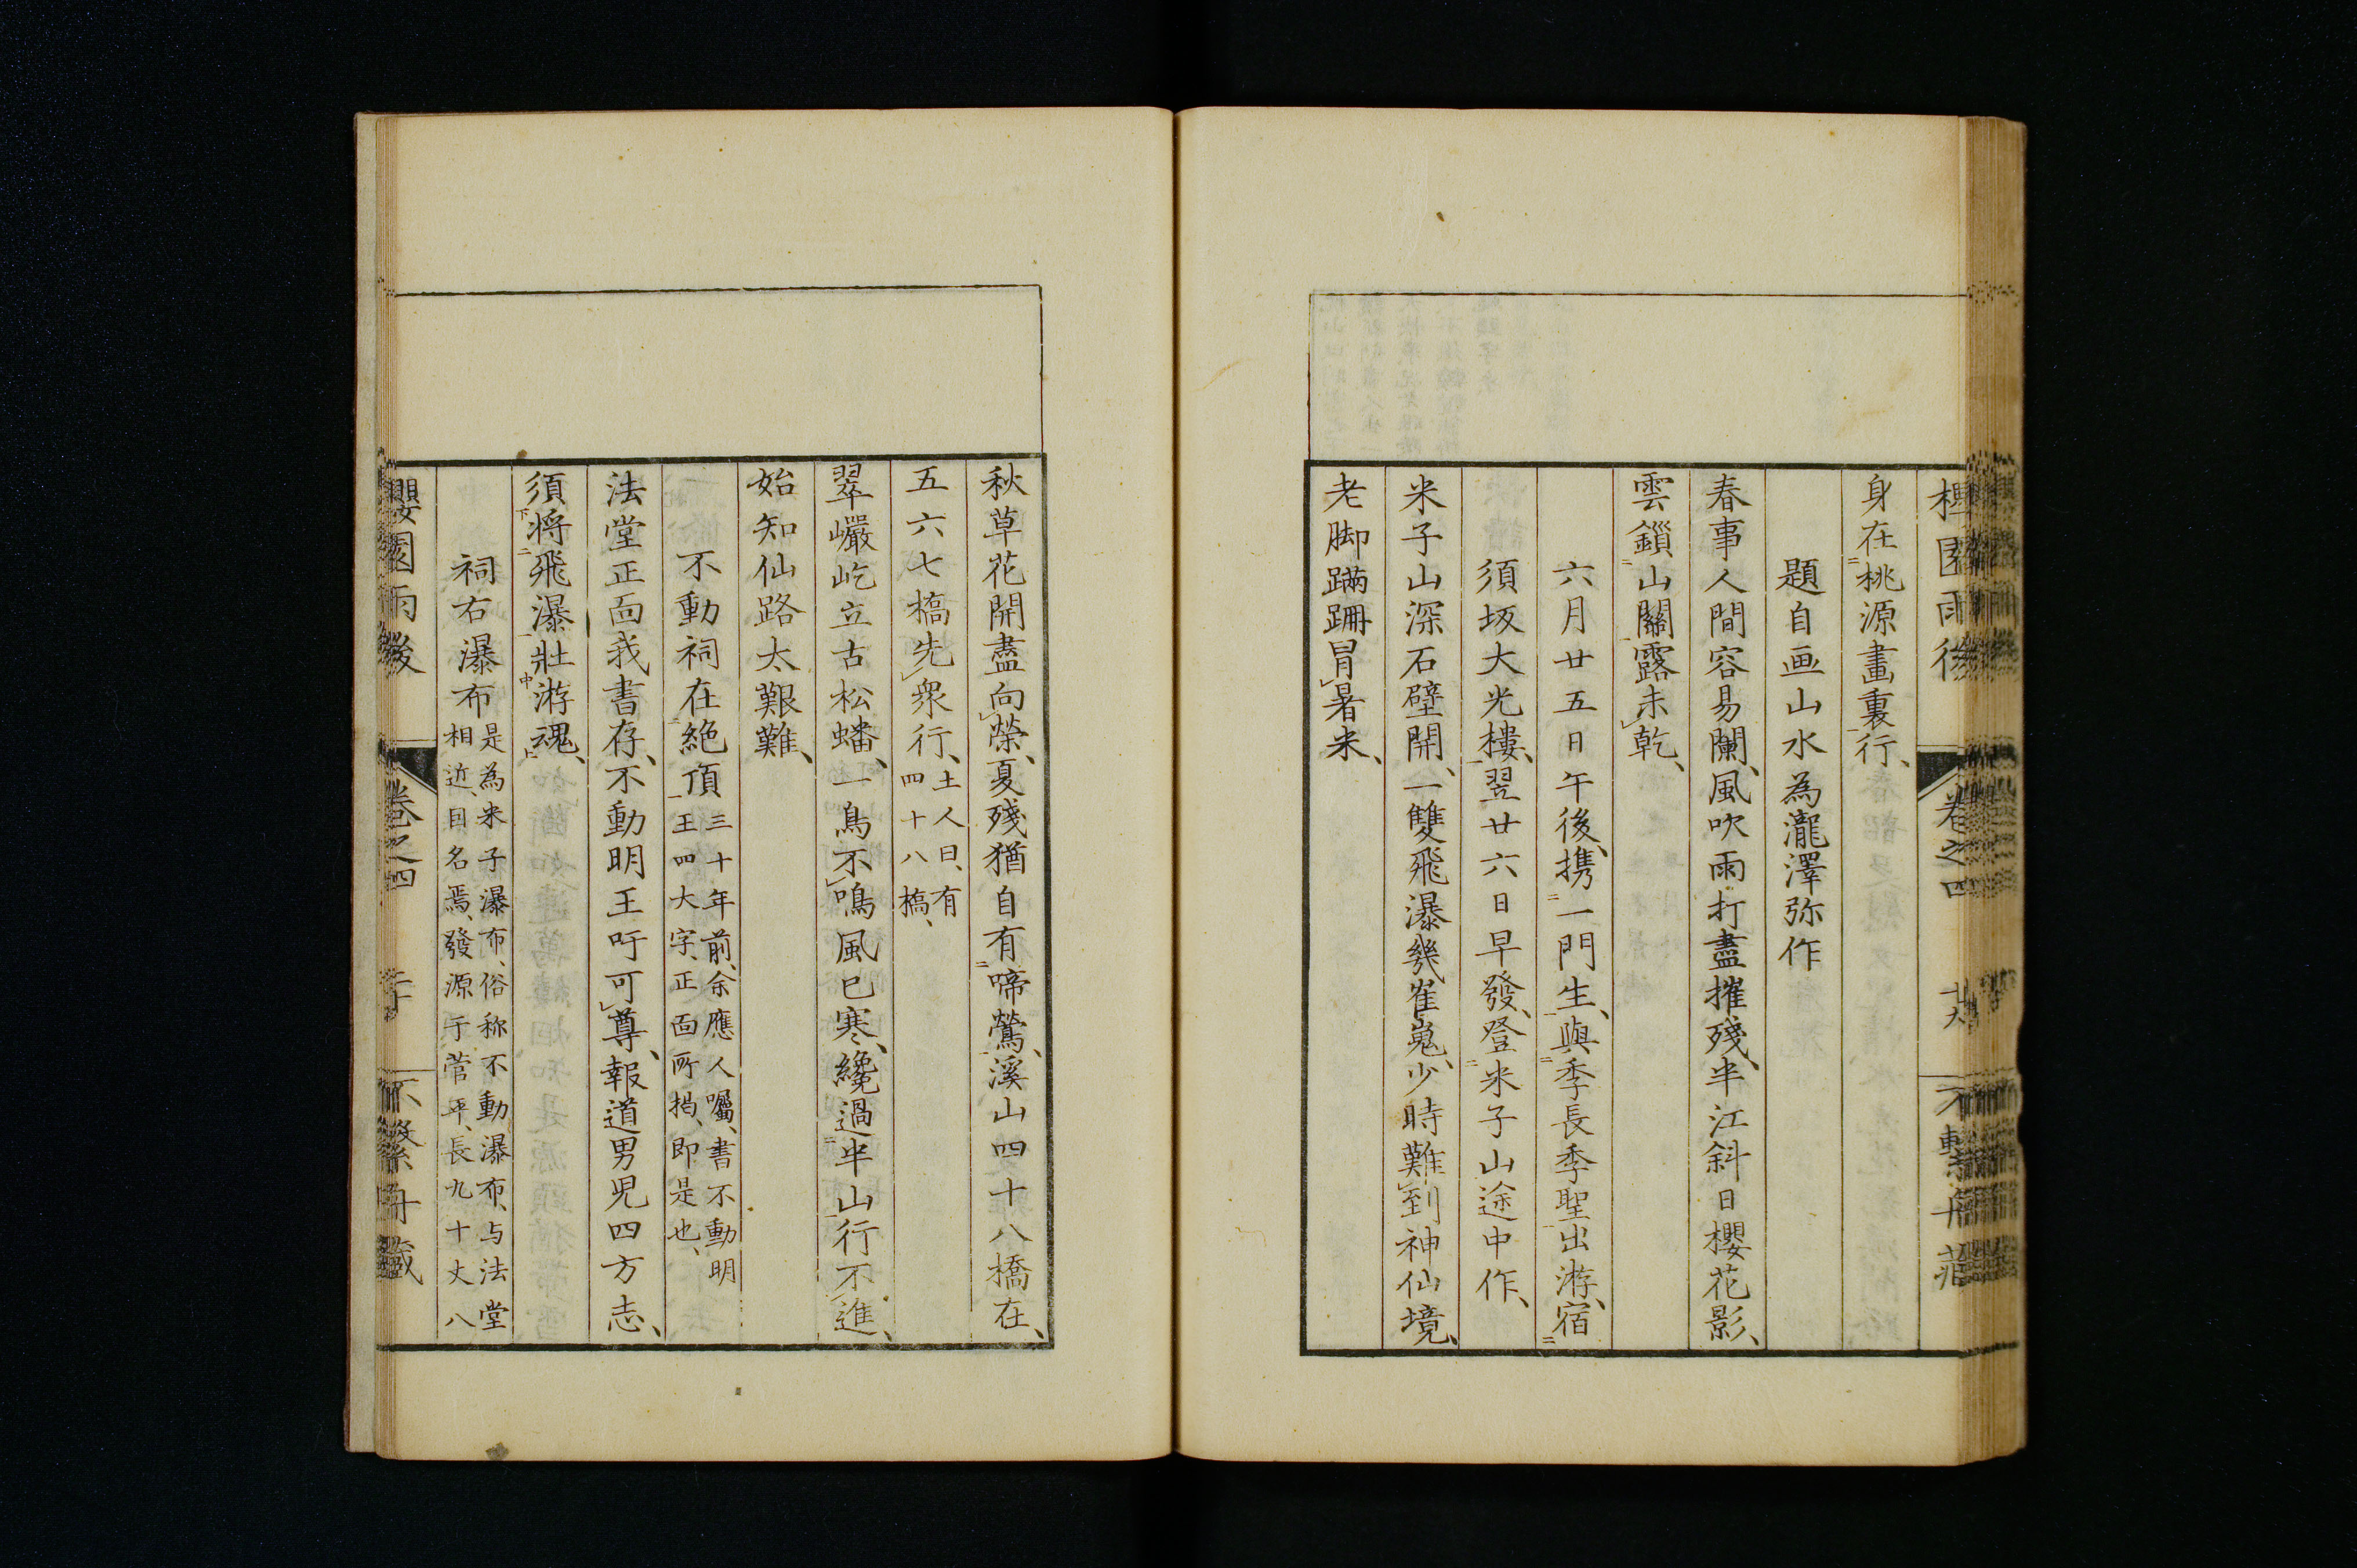 身在桃源畫裏行、
題自画山水為瀧澤弥作
春事人間容易闌、風吹雨打盡摧残、半江斜日櫻花影、
雲鎖山關露未乾、
六月廿五日午後、携一門生、與季長季聖出游、宿
須坂大光樓、翌廿六日早發、登米子山途中作、
米子山深石壁開、一雙飛瀑幾崔嵬、少時難到神仙境、
老脚蹣跚冒暑来、
秋草花開盡向榮、夏殘猶自有啼鶯、溪山四十八橋在、
五六七橋先衆行、土人曰、有四十八橋、
翠巖屹立古松蟠、一鳥不鳴風已寒、纔過半山行不進、
始知仙路太艱難、
不動祠在絶頂三十年前、余應人囑、書不動明王四大字、正面所掲、即是也、
法堂正面我書存、不動明王吁可尊、報道男児四方志、
須将飛瀑壯游魂、
祠右瀑布是為米子瀑布、俗称不動瀑布、与法堂相近、因名焉、發源于菅平、長九十丈八
櫻園雨後 卷之四 不繫舟藏